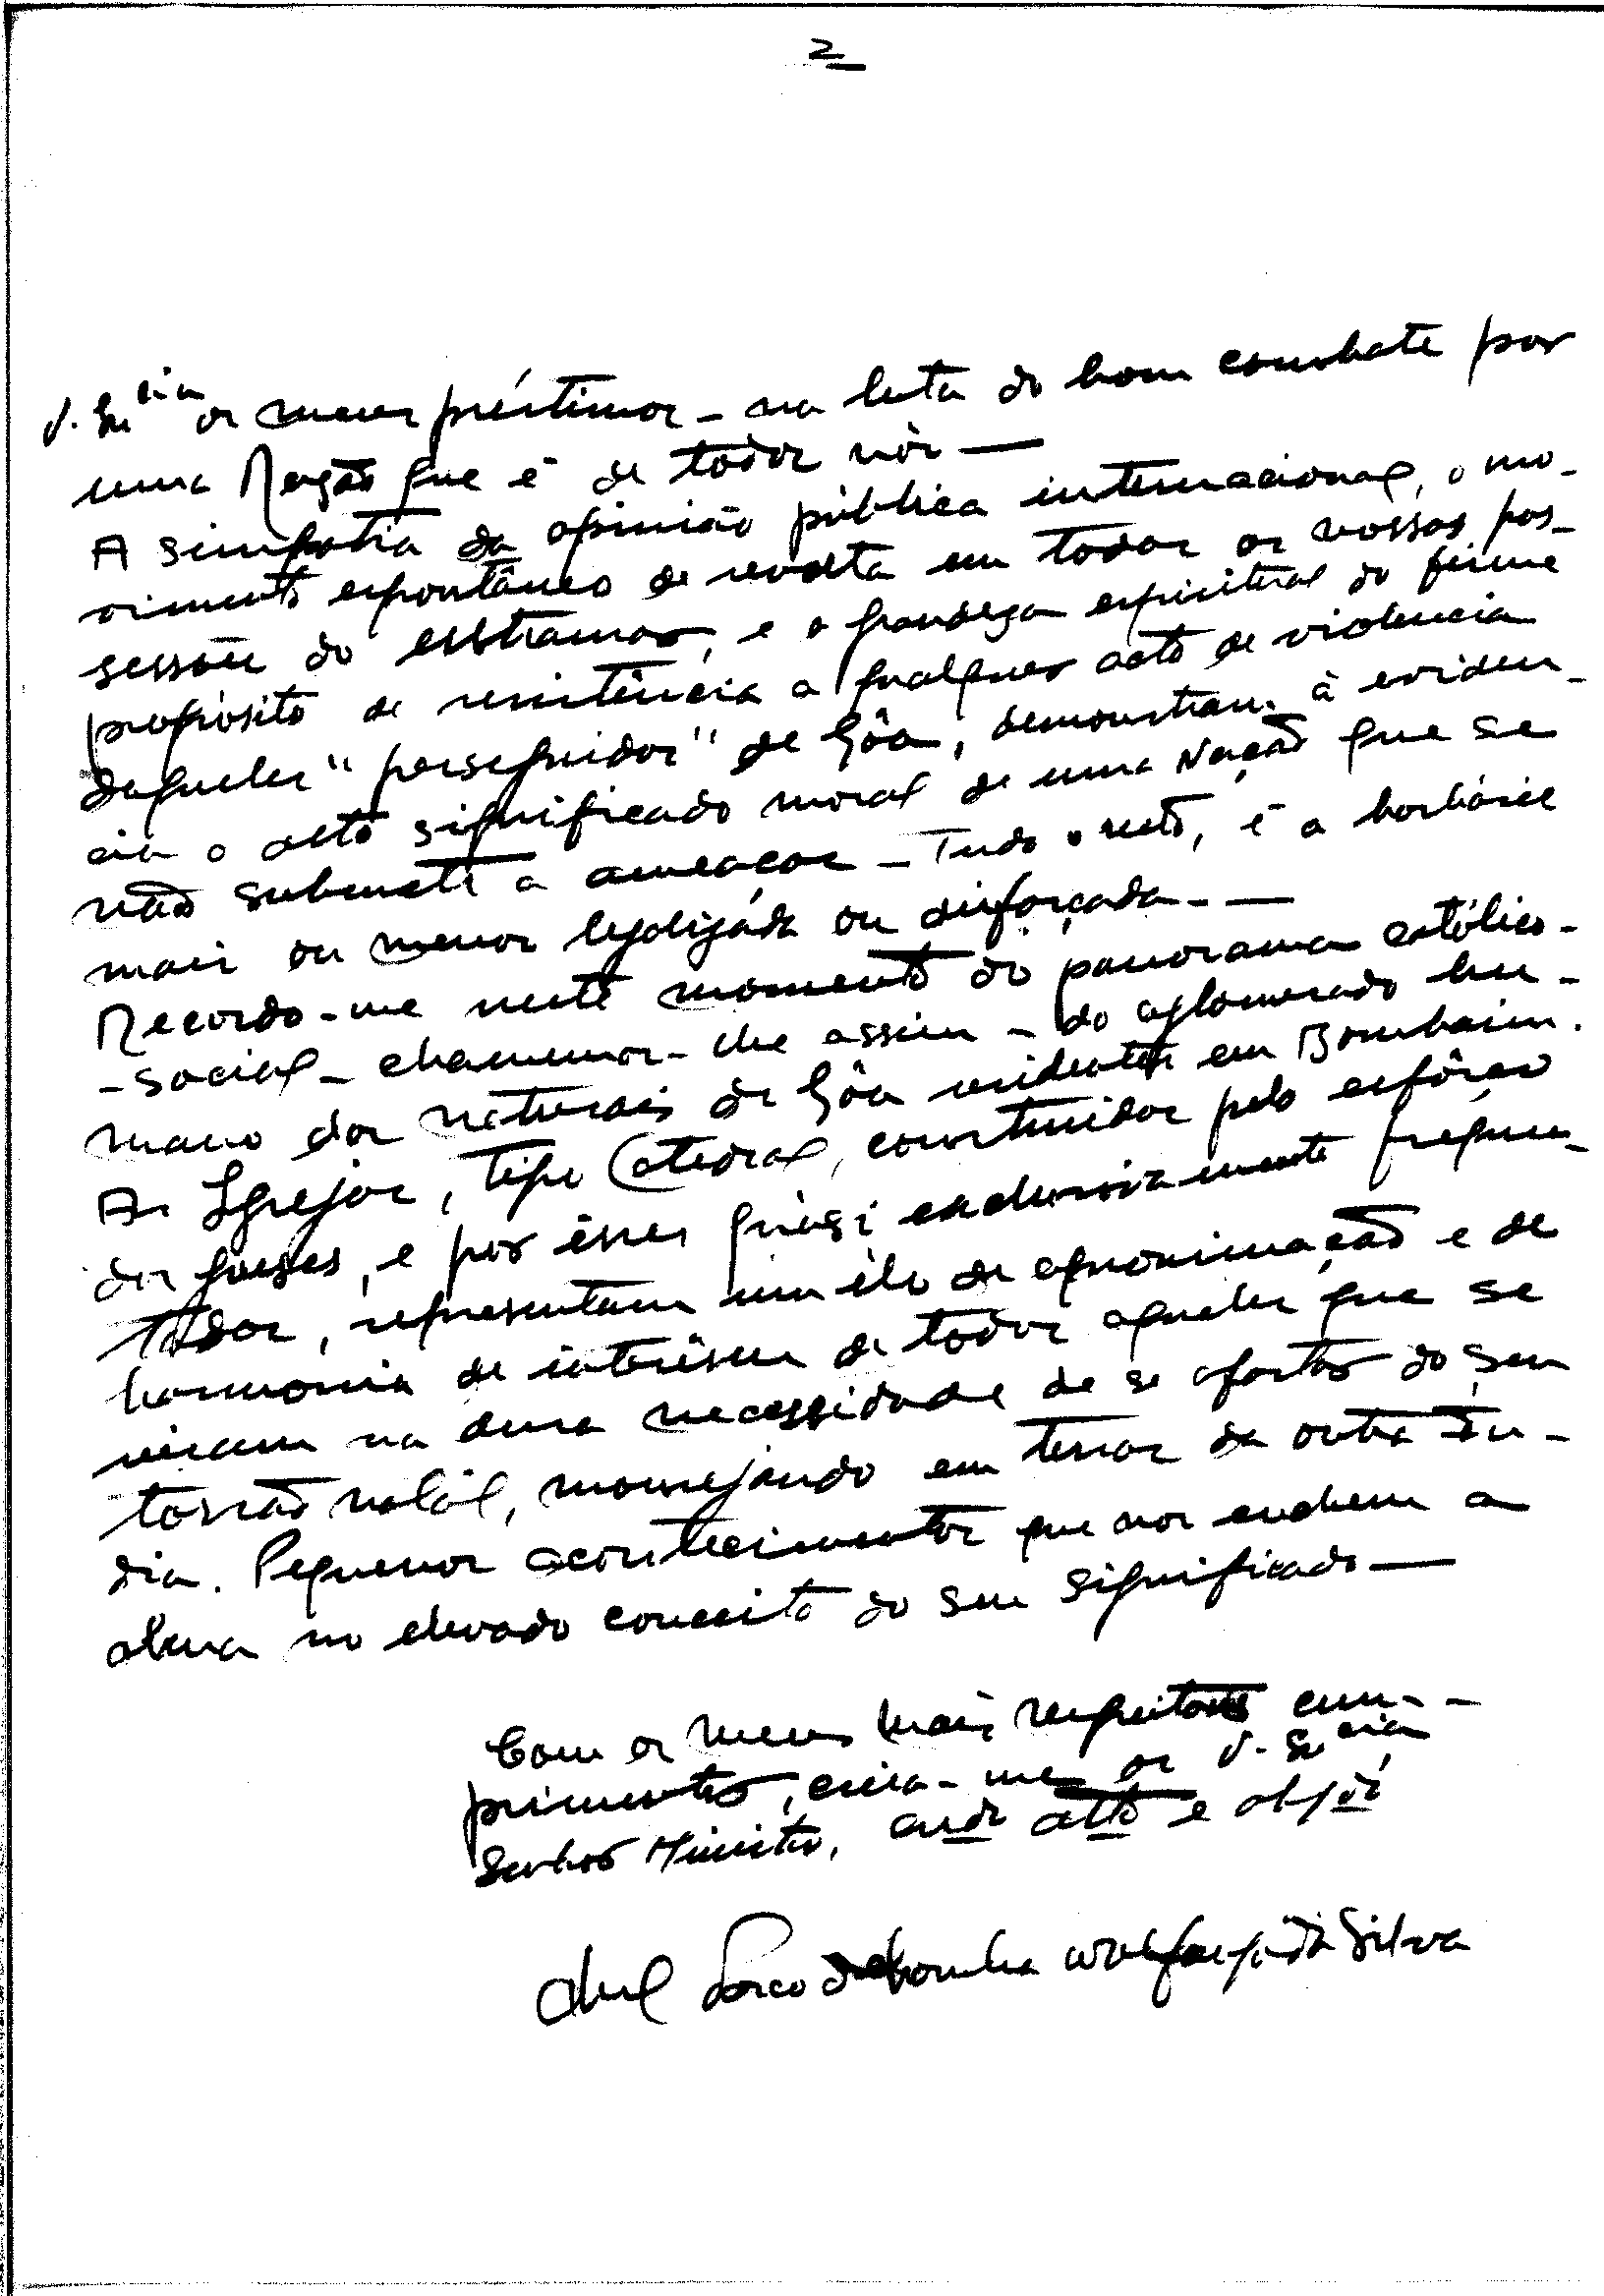 2
V. Ex.cia os meus préstimos - na luta do bom combate por
uma Nação que é de todos nós —
A simpatia da opinião pública internacional, o mo-
vimento espontâneo de revolta em todas as vossas pos-
sessões do ultramar, e a grandeza espiritual do firme
propósito de resistência a qualquer acto de violência
daqueles "perseguidor" de Gôa, demonstram à eviden-
cia o alto significado moral de uma Nação que se
não submete a ameaças - Tudo o resto, é a barbárie
mais ou menos legalizada ou disfarçada - —
Recordo-me neste momento do panorama católico-
-social - chamemos-lhe assim - do aglomerado hu-
mano dos naturais de Gôa residentes em Bombaim.
As Igrejas, tipo Catedral, construidas pelo esfôrço
dos goeses, e por êsses quasi exclusivamente frequen-
tadas, representam um élo de aproximação e de
harmonia de interêsses de todos aqueles que se
viram na dura necessidade de se afastar do seu
torrão natal, mourejando em terras da outra In-
dia. Pequenos acontecimentos que nos enchem a
alma no elevado conceito do seu significado —
Com os meus mais respeitosos cum-
primentos, creia-me de V. Ex.cia
Senhor Ministro, att.o e obg.do
Abel da Silva